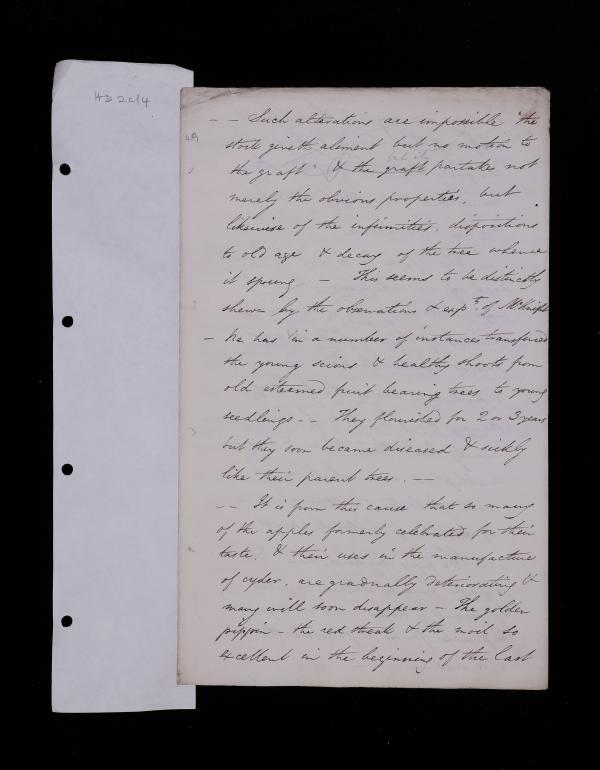 HD 2c/4
49
- - Such alterations are impossible the
stock giveth aliment but no motion to
the graft & the graft partakes not
merely the obvious properties, but
likewise of the infirmities, dispositions
to old age & decay of the tree whence
it sprung - This seems to be distinctly
shewn by the observations & expts. of Mr Knight
- he has in a number of instances transferred
the young scions & healthy shoots from
old esteemed fruit bearing trees to young
seedlings - - They flourished for 2 or 3 years
but they soon became diseased & sickly
like their parent trees. - -
- - It is from this cause that so many
of the apples formerly celebrated for their
taste, & their uses in the manufacture
of cyder, are gradually deteriorating &
many will soon disappear - The golden
pippin - the red streak & the moil so
excellent in the beginning of the last